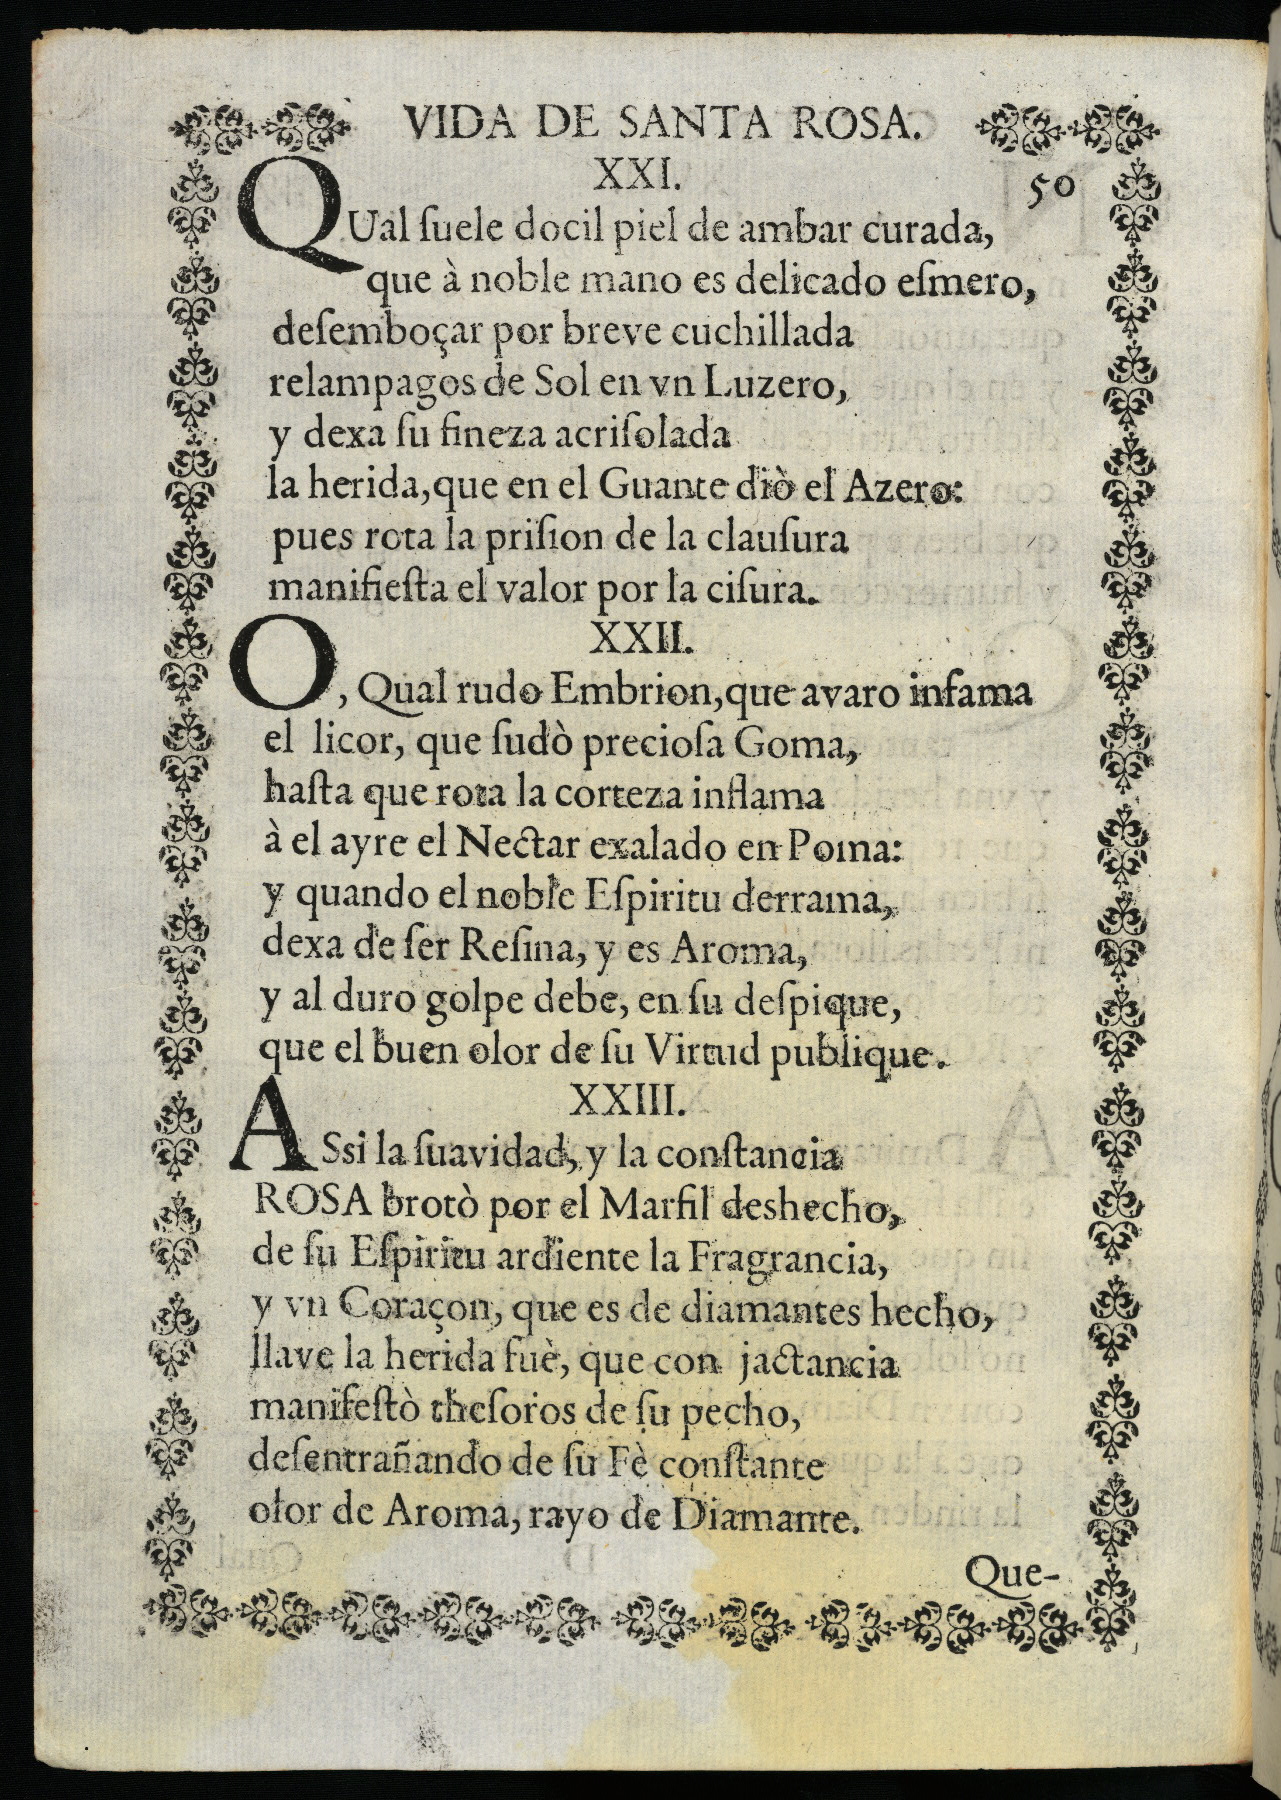 VIDA DE SANTA ROSA.
XXI.
50
QUal ſuele docil piel de ambar curada,
que à noble mano es delicado eſmero,
deſemboçar por breve cuchillada
relampagos de Sol en vn Luzero,
y dexa ſu fineza acriſolada
la herida, que en el Guante diò el Azero:
pues rota la priſion de la clauſura
manifieſta el valor por la ciſura.
XXII.
O, Qual rudo Embrion, que avaro infama
el licor, que ſudò precioſa Goma,
haſta que rota la corteza inflama
à el ayre el Nectar exalado en Poma:
y quando el noble Eſpiritu derrama,
dexa de ſer Reſina, y es Aroma,
y al duro golpe debe, en ſu deſpique,
que el buen olor de ſu Virtud publique.
XXIII.
ASsi la ſuavidad, y la conſtancia
ROSA brotò por el Marfil deshecho,
de ſu Eſpiritu ardiente la Fragrancia,
y vn Coraçon, que es de diamantes hecho,
llave la herida fuè, que con jactancia
manifeſtò theſoros de ſu pecho,
deſentrañando de ſu Fè conſtante
olor de Aroma, rayo de Diamante.
Que-